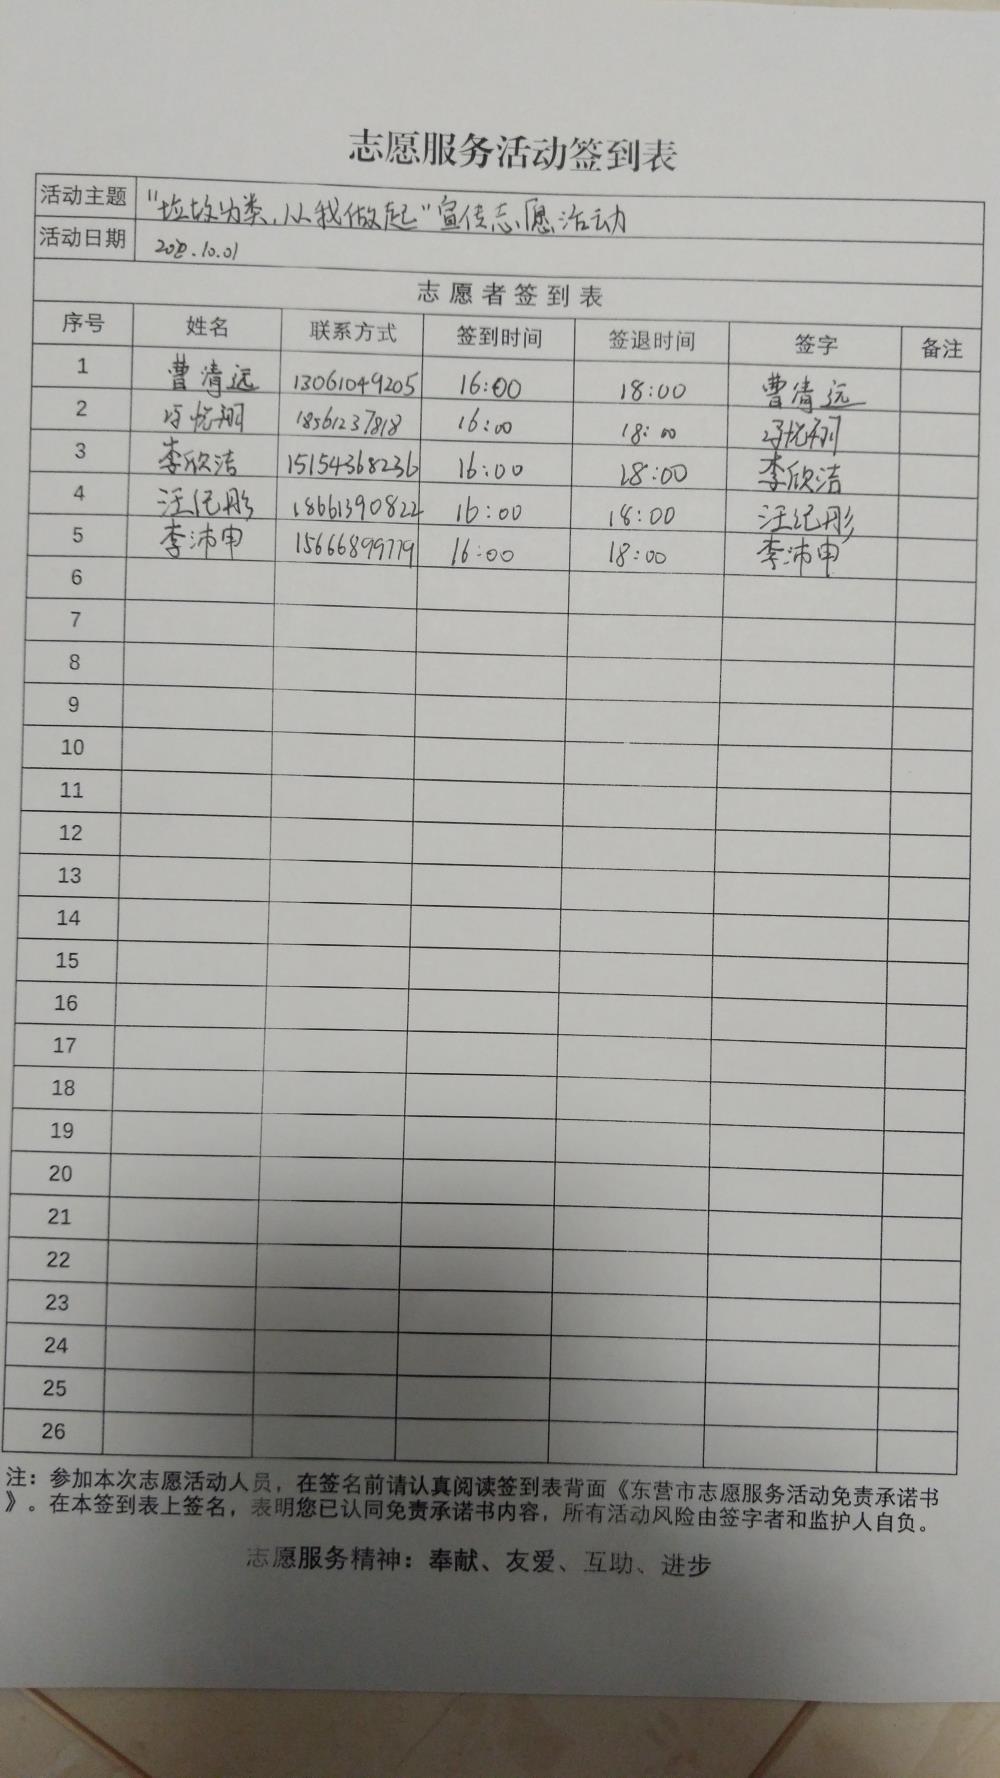 志愿服务活动签到表
活动主题 "垃圾分类,从我做起"宣传志愿活动
活动日期
志愿者签到表
序号 姓名 联系方式 签到时间 签退时间 签字 备注
1 曹清远 13061049205 16:00 18:00 曹清远
2 冯悦翔 18561237818 16:00 18:00 冯悦翔
3 李欣洁 15154368236 16:00 18:00 李欣洁
4 汪纪彤 18661390822 16:00 18:00 汪纪彤
5 李沛申 15666899779 16:00 18:00 李沛申
6
7
8
9
10
11
12
13
14
15
16
17
18
19
20
21
22
23
24
25
26
注：参加本次志愿活动人员，在签名前请认真阅读签到表背面《东营市志愿服务活动免责承诺书
》。在本签到表上签名，表明您已认同免责承诺书内容，所有活动风险由签字者和监护人自负。
志愿服务精神：奉献、友爱、互助、进步